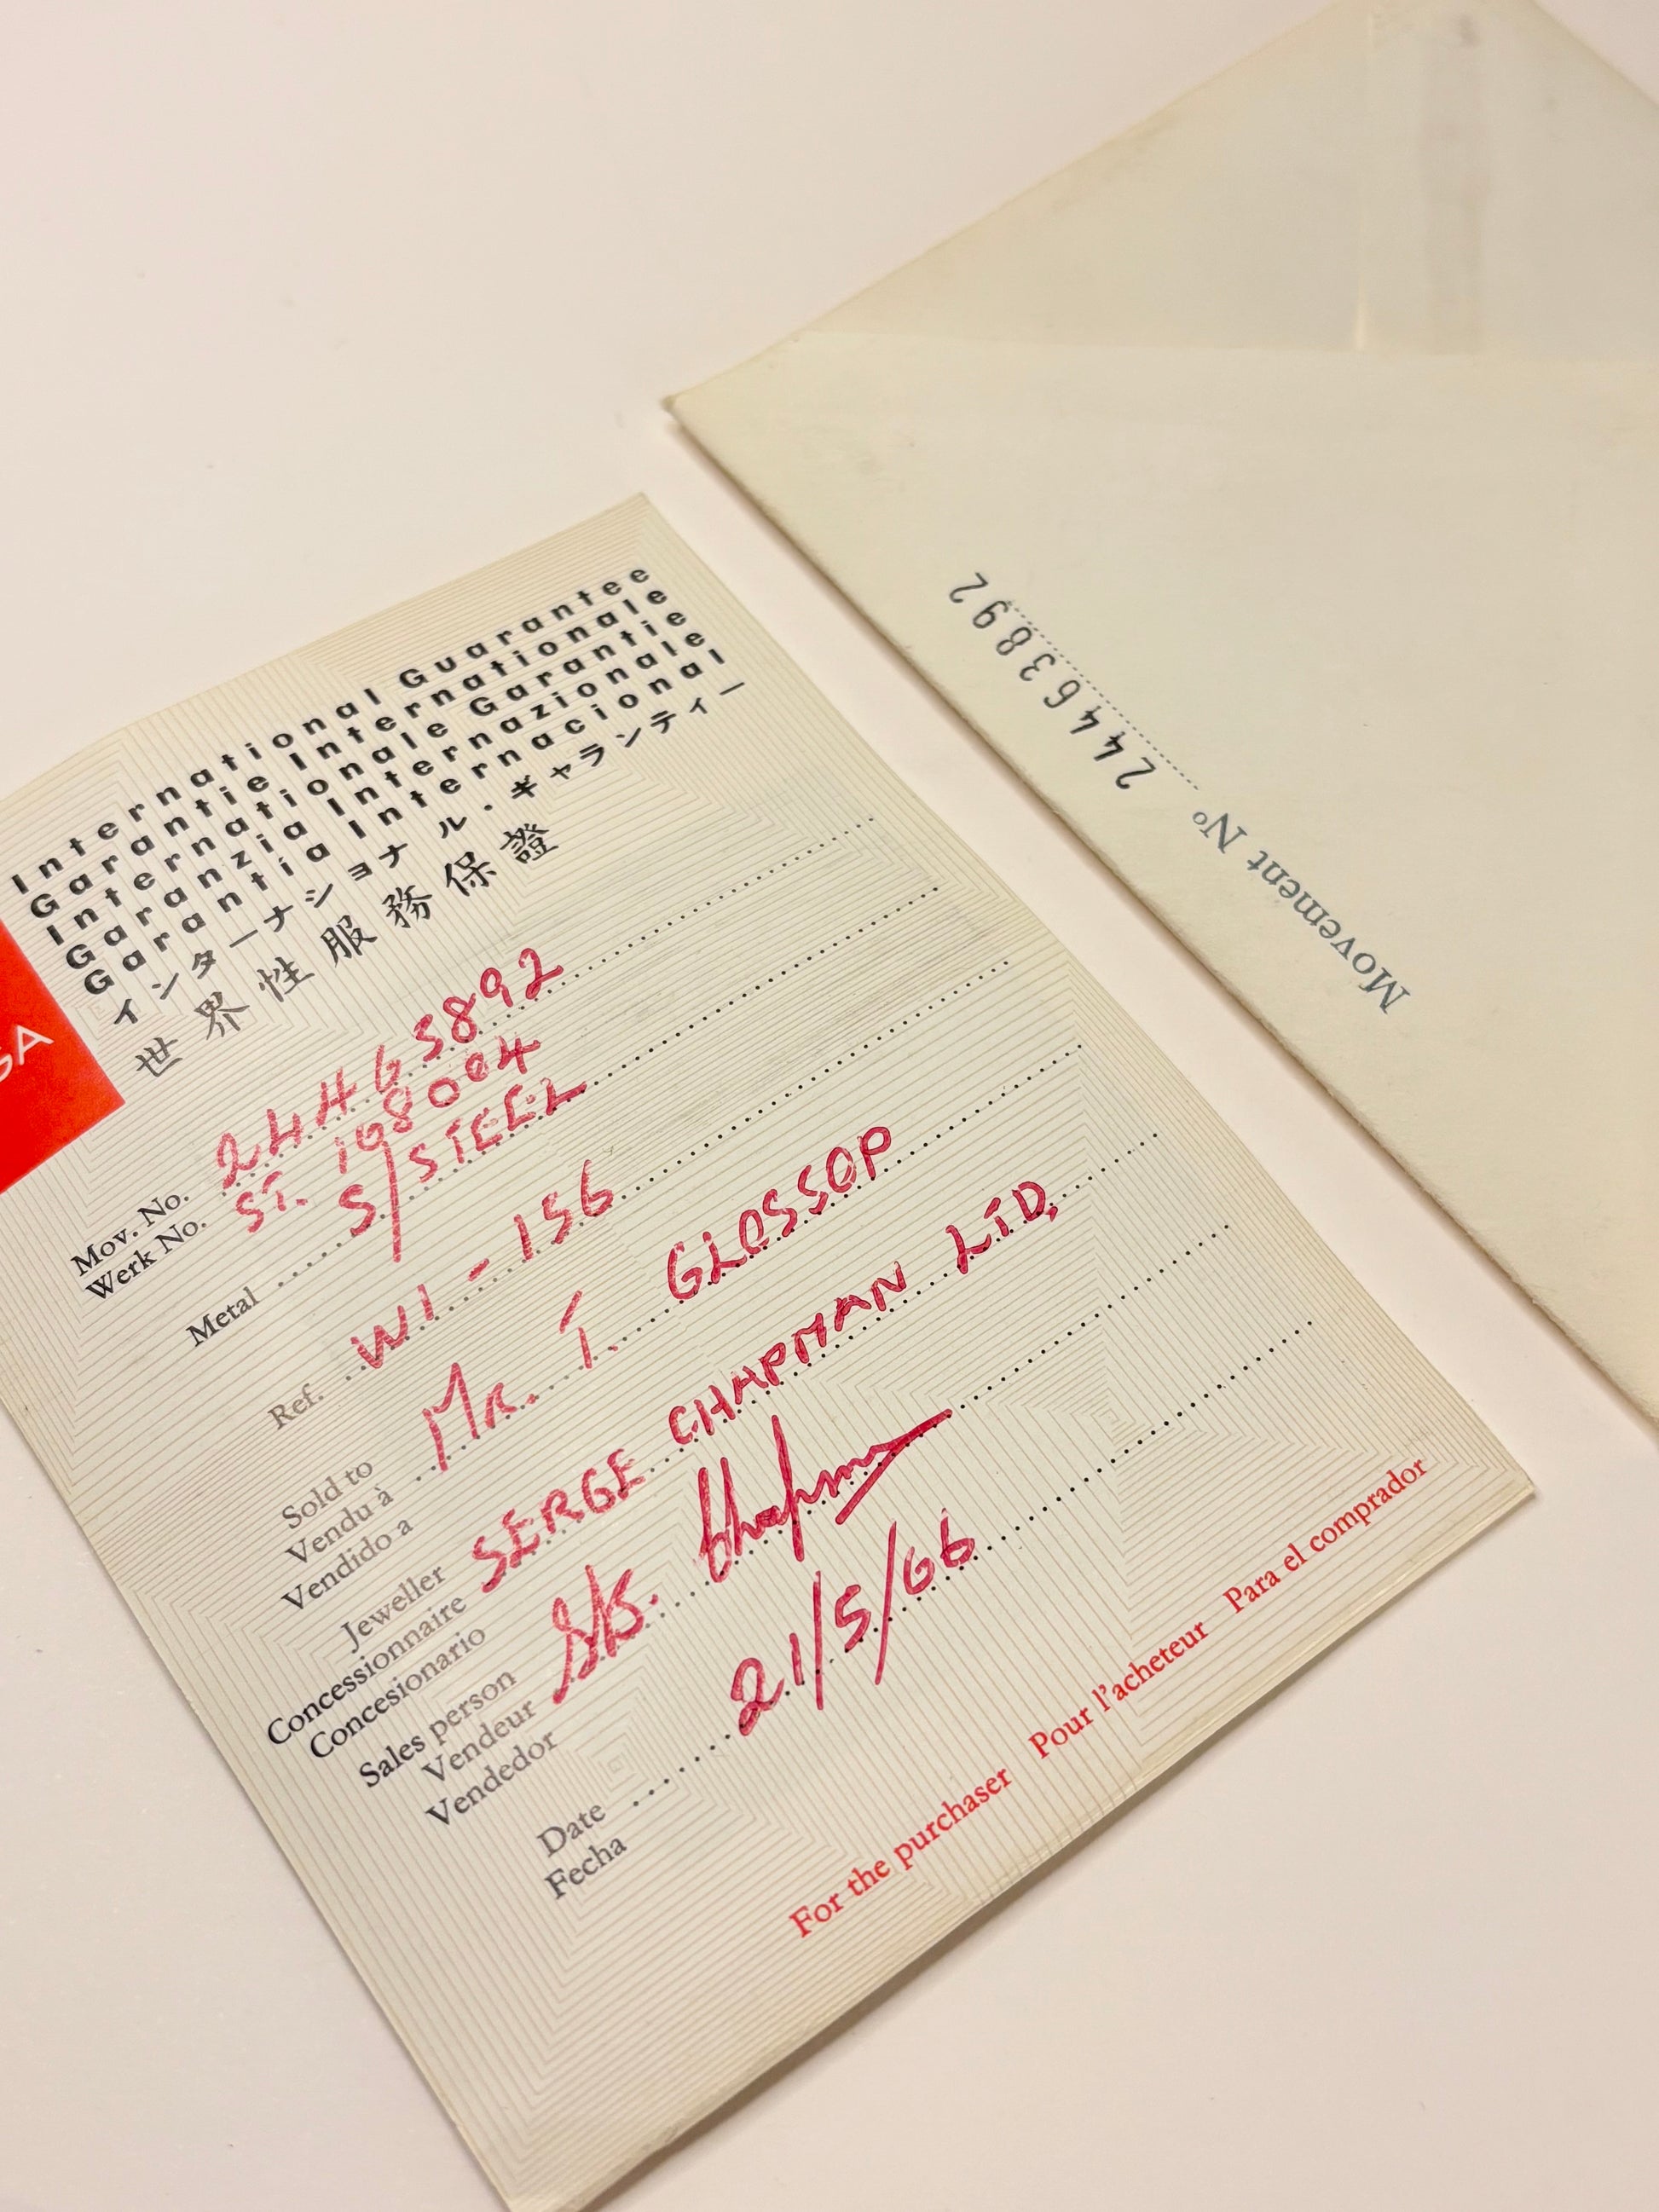 International Guarantee
Garantie Internationale
Internationale Garantie
Garanzia Internazionale
Garantia Internacional
インターナショナル・ギャランティー
世界性服務保證
GA
Mov. No. 24463892
Werk No. ST. 168004
Metal S/STEEL
Ref. WI-156
Sold to Mr. T. GLOSSOP
Vendu à
Vendido a
Jeweller SERGE CHAPMAN LTD.
Concessionnaire
Concesionario
Sales person
Vendeur
Vendedor
Date 21/5/66
Fecha
For the purchaser Pour l'acheteur Para el comprador
Movement Nº 24463892